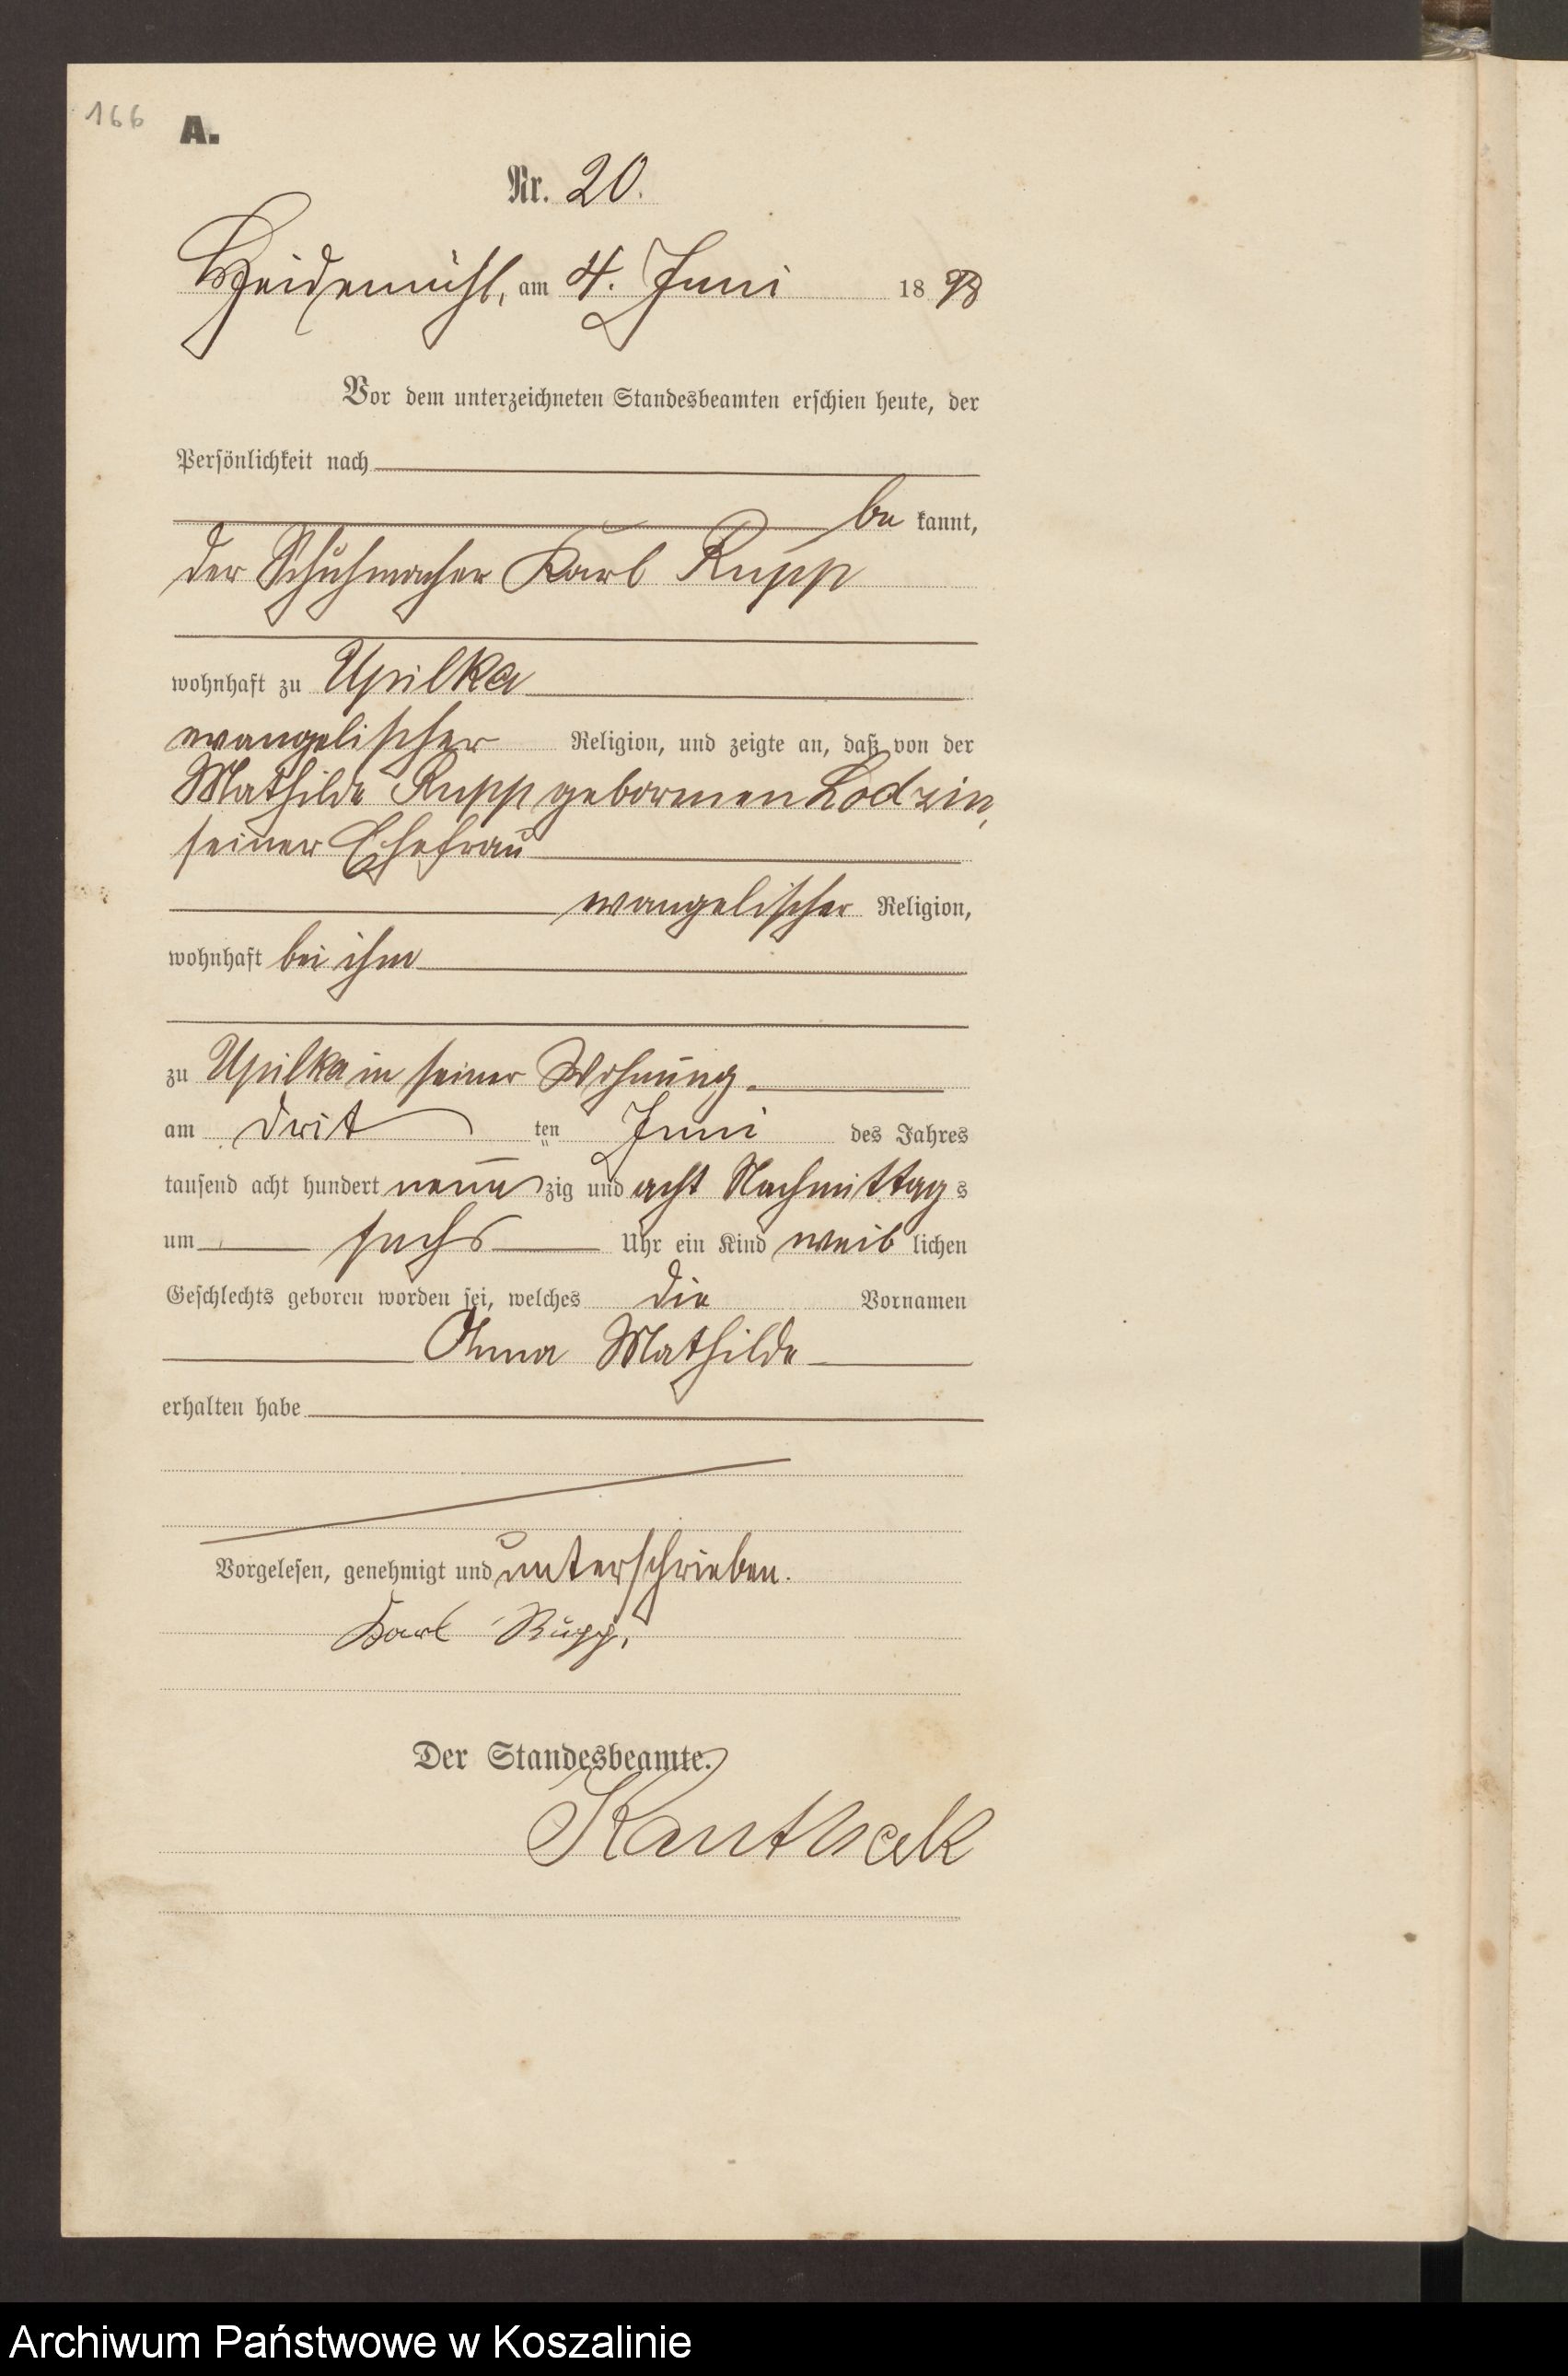 166
A.
Nr. 20.
Heidemühl, am 4. Juni 18 98
Vor dem unterzeichneten Standesbeamten erschien heute, der
Persönlichkeit nach
be kannt,
der Schuhmacher Karl Rupp
wohnhaft zu Upilka
evangelischer Religion, und zeigte an, daß von der
Mathilde Rupp gebornen Lodzin,
seiner Ehefrau
evangelischer Religion,
wohnhaft bei ihm
zu Upilka in seiner Wohnung
am drit ten Juni des Jahres
tausend acht hundert neun zig und acht Nachmittag s
um sechs Uhr ein Kind weib lichen
Geschlechts geboren worden sei, welches die Vornamen
Anna Mathilde
erhalten habe
Vorgelesen, genehmigt und unterschrieben.
Karl Rupp.
Der Standesbeamte.
Kanthak
Archiwum Państwowe w Koszalinie